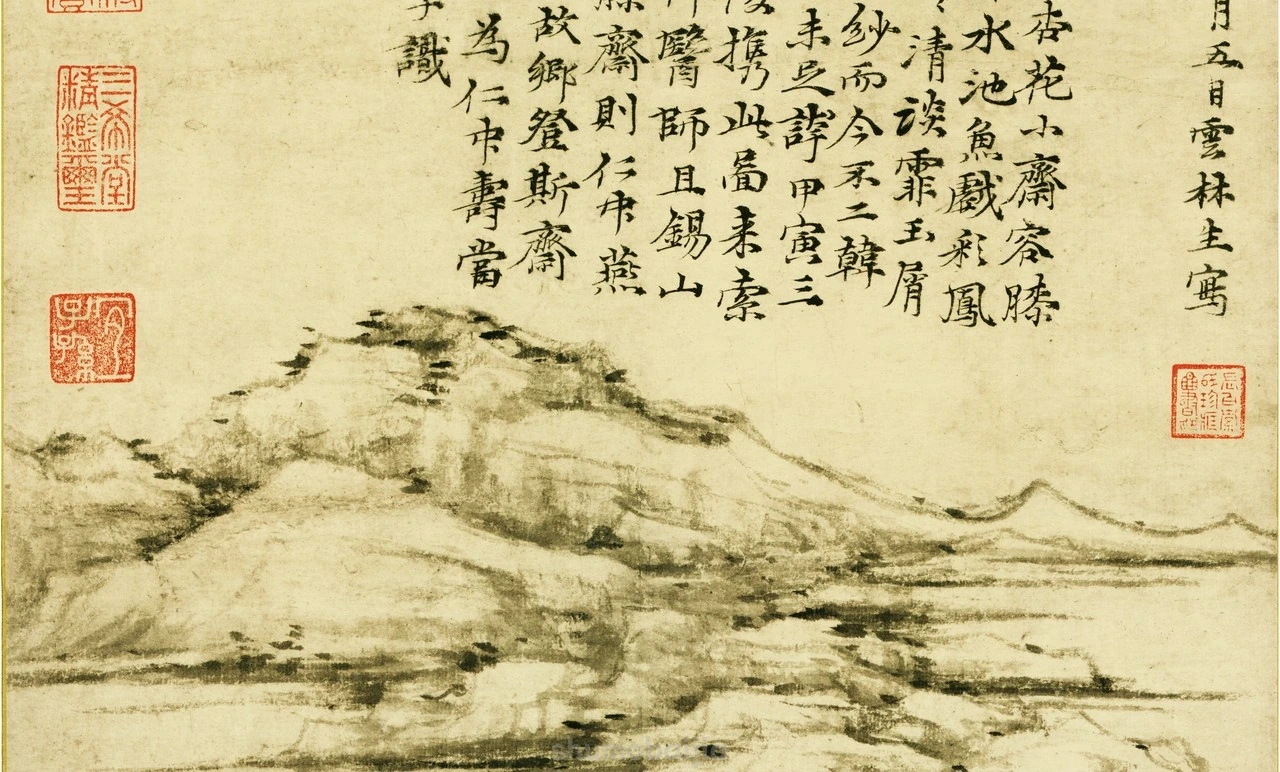 月五日雲林生寫
杏花小齋容膝
水池魚戲彩鳳
清談霏玉屑
紗而今不二韓
未足誇甲寅三
攜此啚来索
醫師且錫山
齋則仁仲燕
故鄉登斯齋
為仁仲壽當
識
三希堂精鑑璽
宜子孫